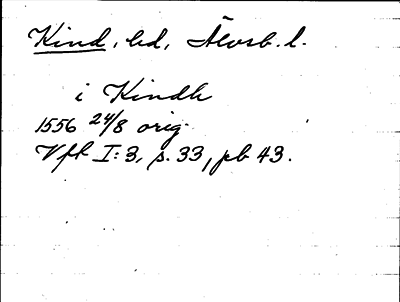 Kind, hd, Älvsb. l.
i Kindh
1556 24/8 orig.
Vfk I:3, s. 33, pb 43.